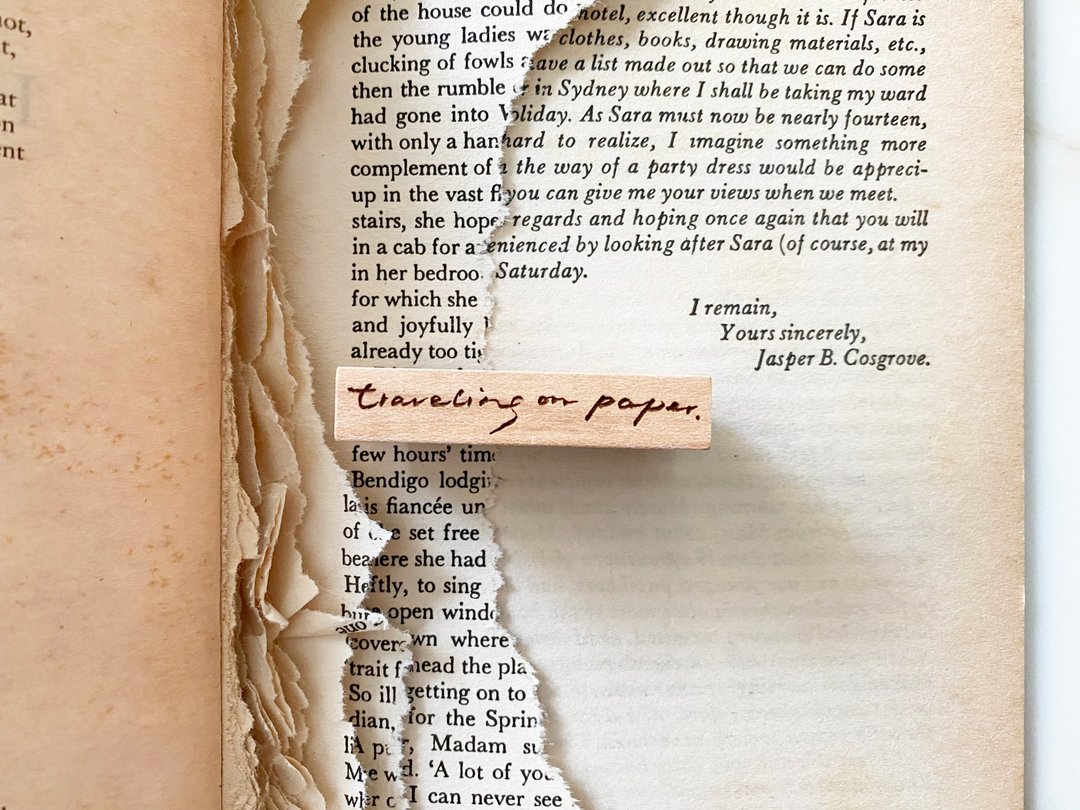 not,
t,
at
n
ent
of the house could do
the young ladies
clucking of fowls
then the rumble
had gone into
with only a
complement of
up in the vast
stairs, she
in a cab for a
in her
for which she
and joyfully
already too
few hours'
Bendigo
is fiancée
of set free
she had
to sing
open
where
head the
trait
So ill getting on to
dian, for the
Madam
Me 'A lot of
I can never see
hotel, excellent though it is. If Sara is
clothes, books, drawing materials, etc.,
have a list made out so that we can do some
in Sydney where I shall be taking my ward
As Sara must now be nearly fourteen,
hard to realize, I imagine something more
the way of a party dress would be appreci-
you can give me your views when we meet.
regards and hoping once again that you will
by looking after Sara (of course, at my
Saturday.
I remain,
Yours sincerely,
Jasper B. Cosgrove.
traveling on paper.